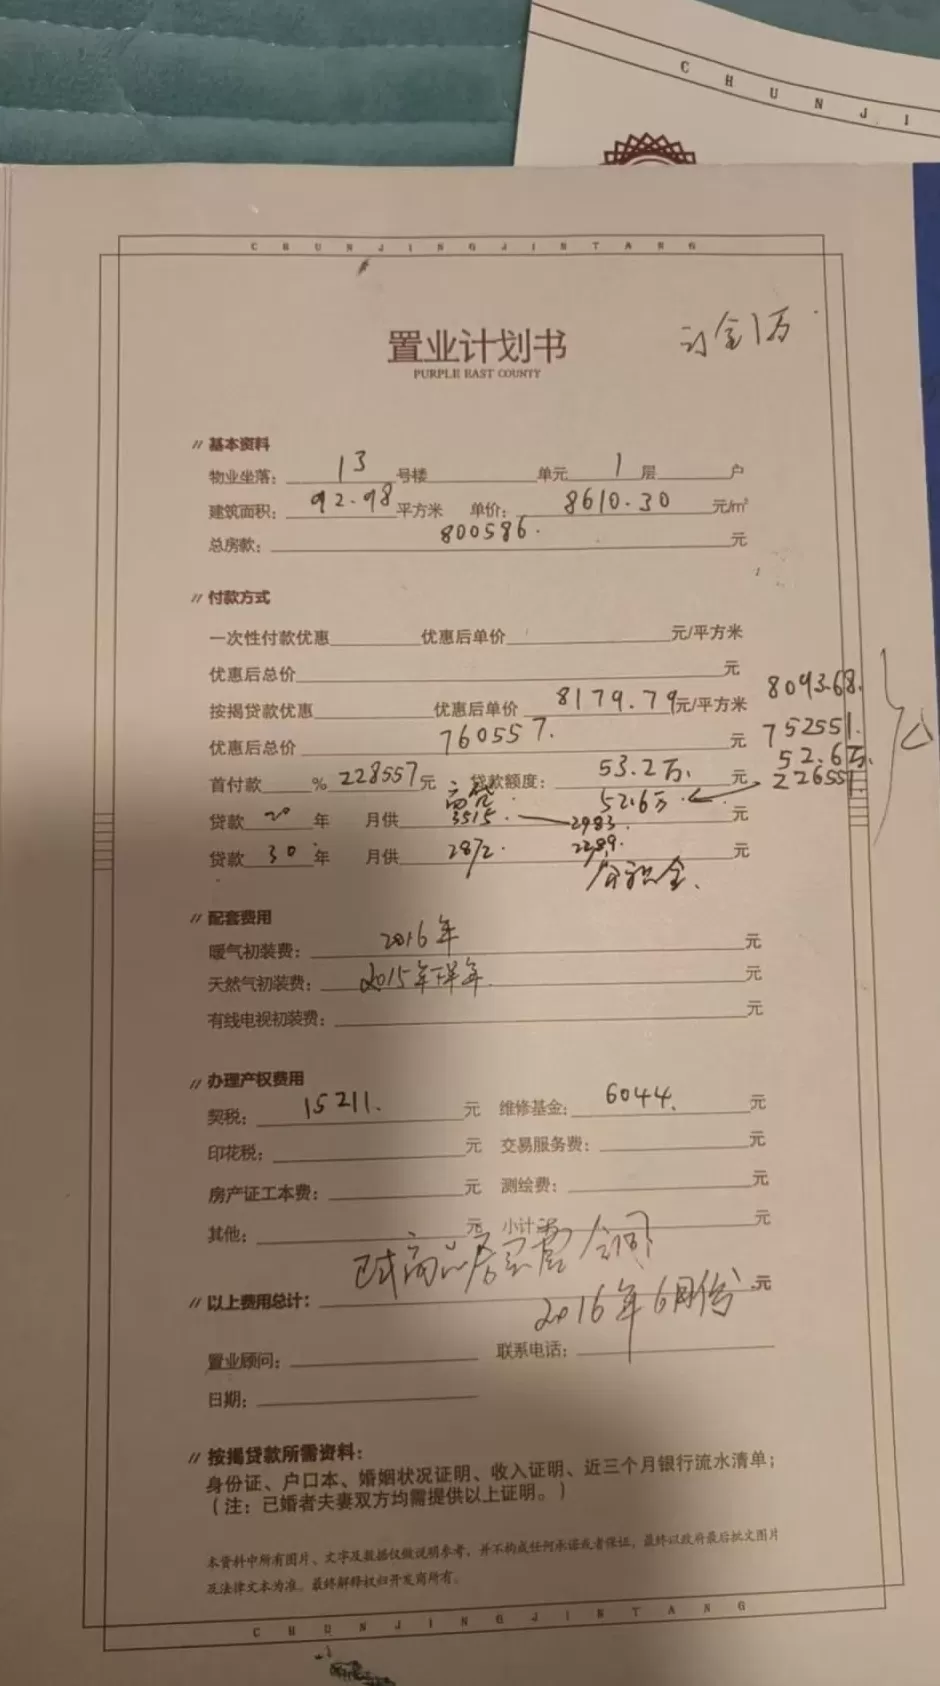 CHUNJI
CHUNJINGJINTANG
置业计划书
PURPLE EAST COUNTY
订金1万
// 基本资料
物业坐落: 13 号楼 单元 1 层 户
建筑面积: 92.98 平方米 单价: 8610.30 元/㎡
总房款: 800586. 元
// 付款方式
一次性付款优惠 优惠后单价 元/平方米
优惠后总价 元
按揭贷款优惠 优惠后单价 8179.79 元/平方米 8093.68.
优惠后总价 760557. 元 752551.
52.6万.
首付款 % 228557 元 贷款额度: 53.2万. 元 226551.
商贷 52.6万.
贷款 20 年 月供 3515. 2983. 元
贷款 30 年 月供 2872. 2289. 元
公积金.
// 配套费用
暖气初装费: 2016年 元
天然气初装费: 2015年下半年. 元
有线电视初装费: 元
// 办理产权费用
契税: 15211. 元 维修基金: 6044. 元
印花税: 元 交易服务费: 元
房产证工本费: 元 测绘费: 元
其他: 元 小计 元
商品房买卖合同
// 以上费用总计: 元
2016年6月份
置业顾问: 联系电话:
日期:
// 按揭贷款所需资料:
身份证、户口本、婚姻状况证明、收入证明、近三个月银行流水清单;
(注: 已婚者夫妻双方均需提供以上证明。)
本资料中所有图片、文字及数据仅做说明参考, 并不构成任何承诺或者保证, 最终以政府最后批文图片
及法律文本为准。最终解释权归开发商所有。
CHUNJINGJINTANG